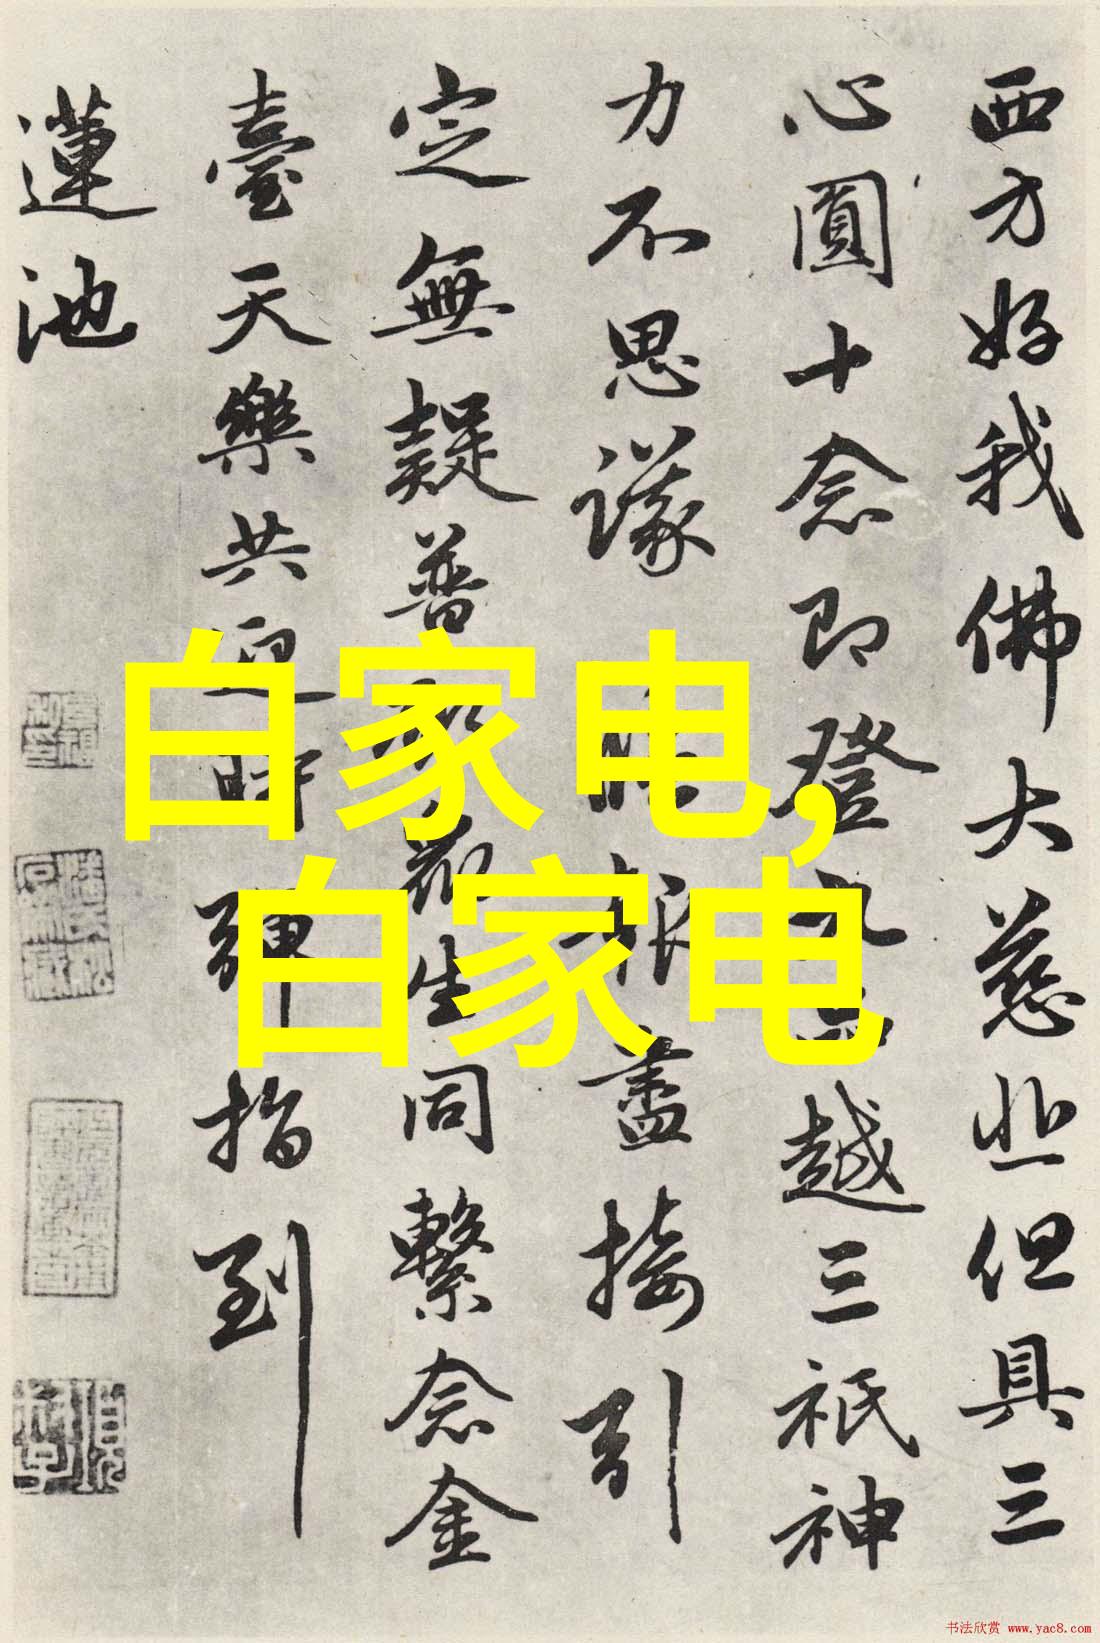 西方好我佛大慈悲但具三
心圓十念即登九品越三祇神
力不思議
報盡接引
定無疑普
眾生同繫念金
臺天樂共迎時彈指到
蓮池
白家电,
白家电
书法欣赏 www.yac8.com